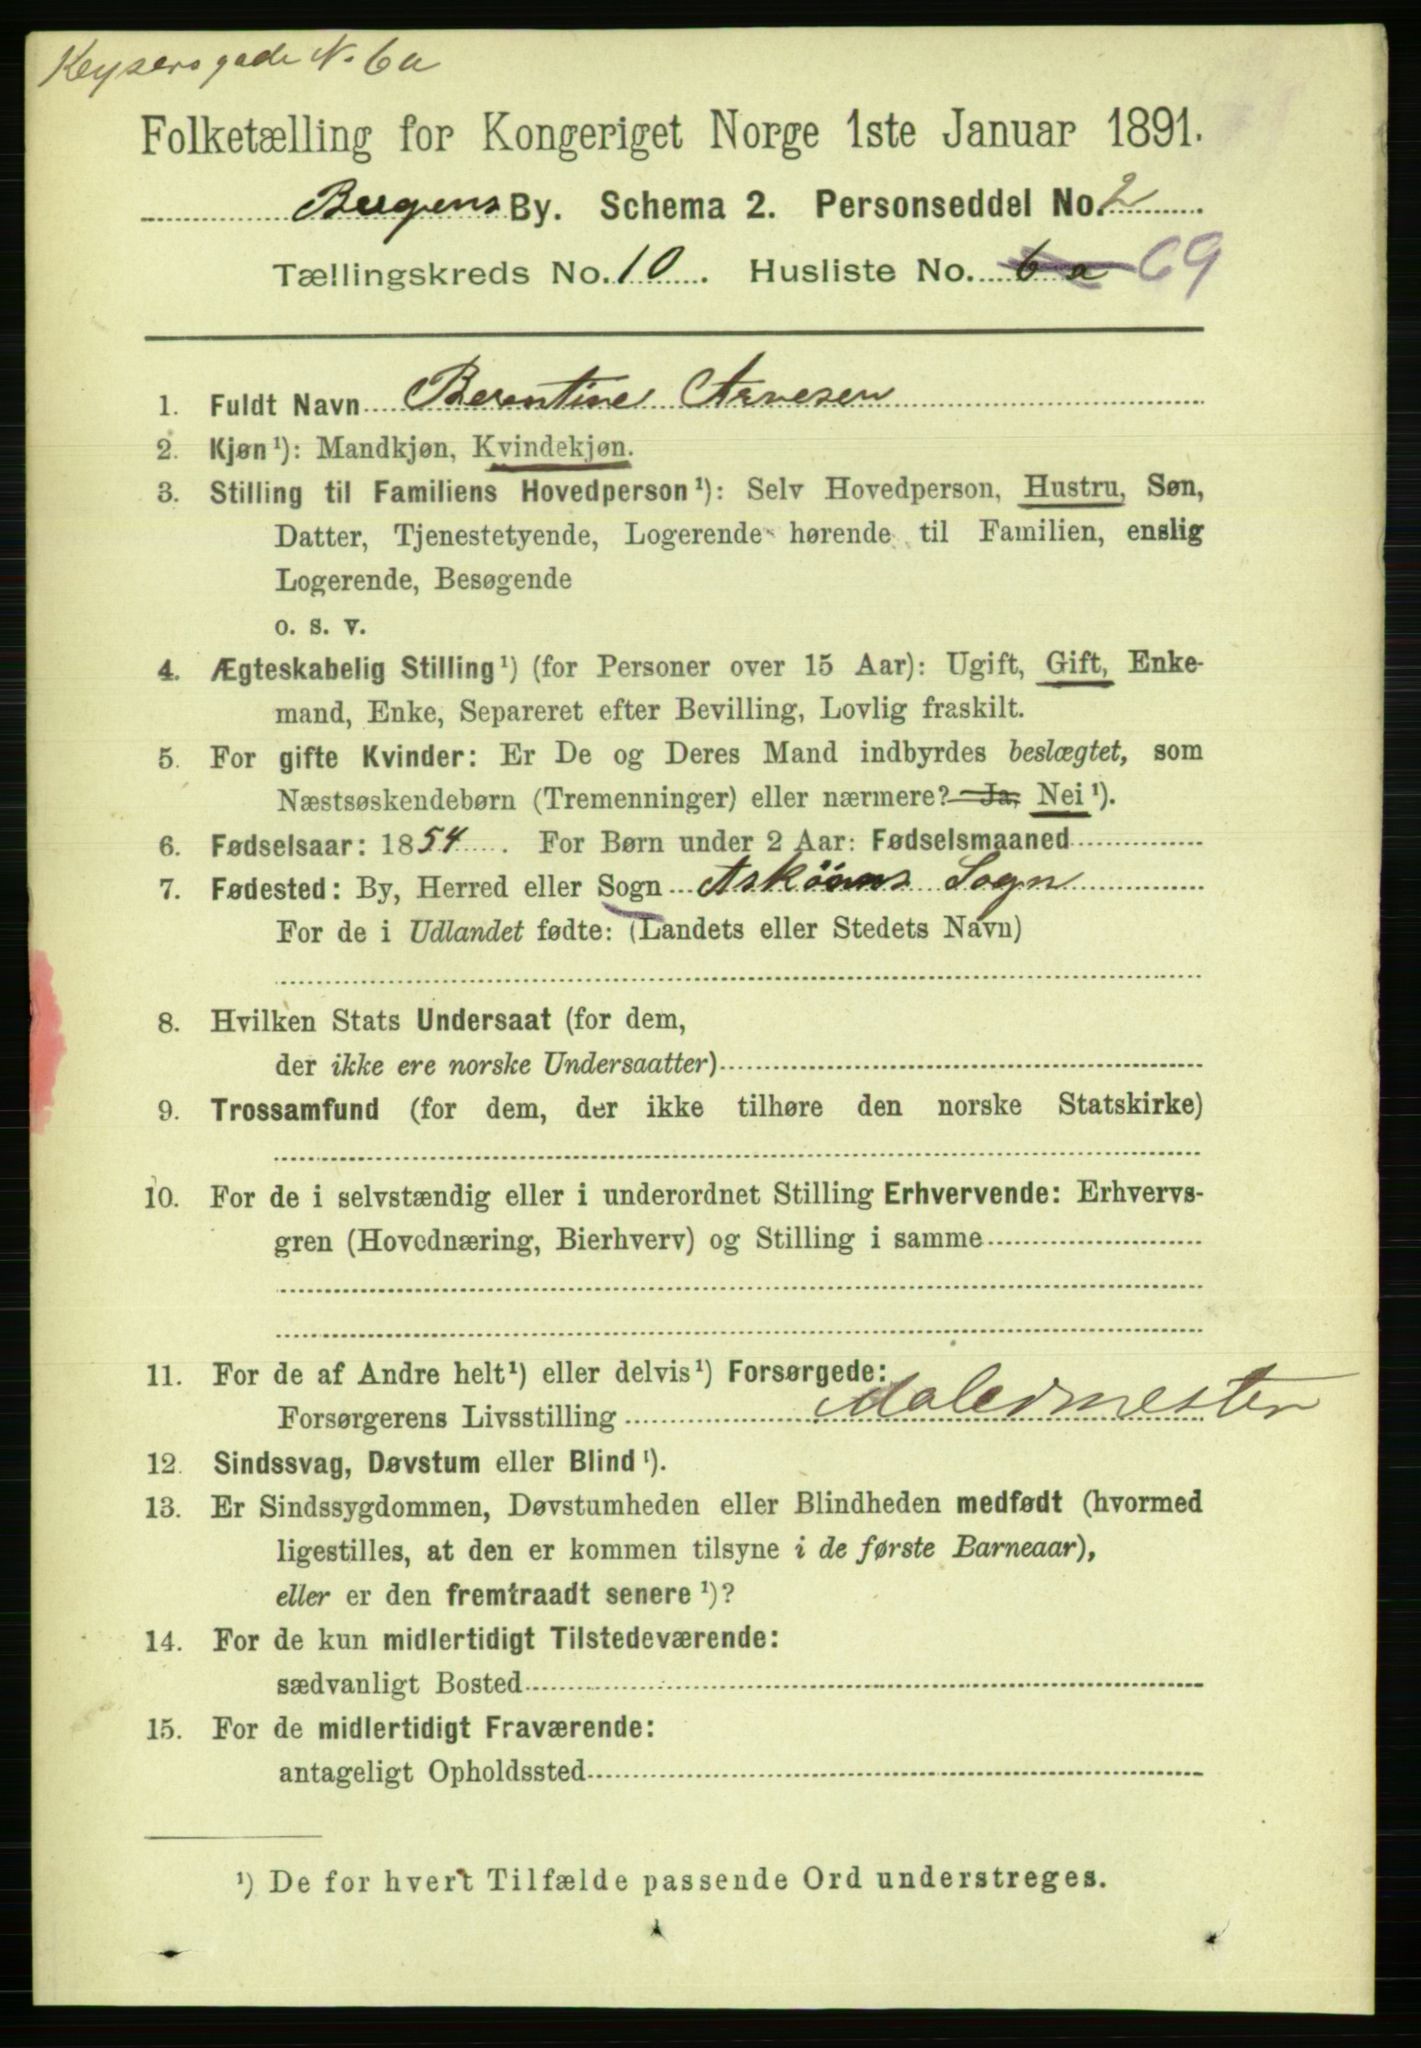 Keysersgade N. 6a
Folketælling for Kongeriget Norge 1ste Januar 1891.
Bergens By. Schema 2. Personseddel No. 2
Tællingskreds No. 10. Husliste No. 6 a 69
1. Fuldt Navn Berentine Arnesen
2. Kjøn¹): Mandkjøn, Kvindekjøn.
3. Stilling til Familiens Hovedperson¹): Selv Hovedperson, Hustru, Søn,
Datter, Tjenestetyende, Logerende hørende til Familien, enslig
Logerende, Besøgende
o. s. v.
4. Ægteskabelig Stilling¹) (for Personer over 15 Aar): Ugift, Gift, Enke-
mand, Enke, Separeret efter Bevilling, Lovlig fraskilt.
5. For gifte Kvinder: Er De og Deres Mand indbyrdes beslægtet, som
Næstsøskendebørn (Tremenninger) eller nærmere? Ja, Nei¹).
6. Fødselsaar: 1854. For Børn under 2 Aar: Fødselsmaaned
7. Fødested: By, Herred eller Sogn Asköens Sogn
For de i Udlandet fødte: (Landets eller Stedets Navn)
8. Hvilken Stats Undersaat (for dem,
der ikke ere norske Undersaatter)
9. Trossamfund (for dem, der ikke tilhøre den norske Statskirke)
10. For de i selvstændig eller i underordnet Stilling Erhvervende: Erhvervs-
gren (Hovednæring, Bierhverv) og Stilling i samme
11. For de af Andre helt¹) eller delvis¹) Forsørgede:
Forsørgerens Livsstilling Malermester
12. Sindssvag, Døvstum eller Blind¹).
13. Er Sindssygdommen, Døvstumheden eller Blindheden medfødt (hvormed
ligestilles, at den er kommen tilsyne i de første Barneaar),
eller er den fremtraadt senere¹)?
14. For de kun midlertidigt Tilstedeværende:
sædvanligt Bosted
15. For de midlertidigt Fraværende:
antageligt Opholdssted
¹) De for hvert Tilfælde passende Ord understreges.